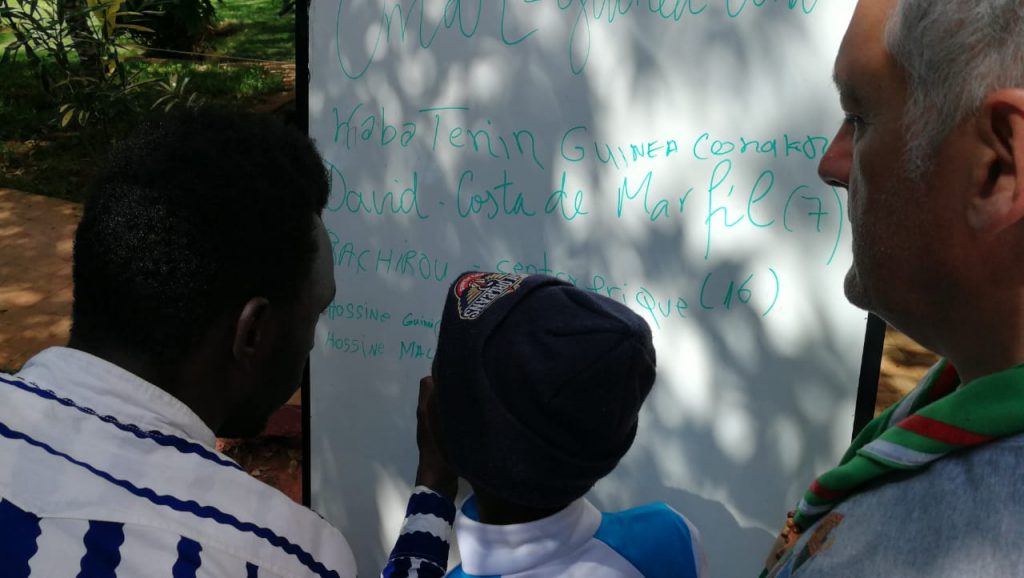 Omar - guinea
Kaba Tenin GUINEA CONAKRY
David - Costa de Marfil (7)
BACHIROU - centrafrique (16)
Hossine Guin
Hossine MAL